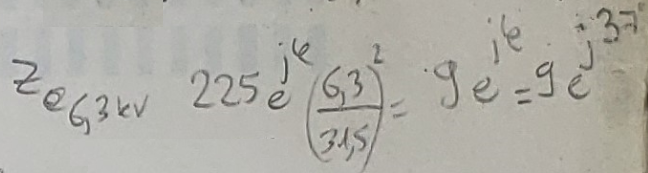 Z_{e 6,3 kV} 225 e^{jφ} (6,3/31,5)^2 = 9 e^{jφ} = 9 e^{j37°}